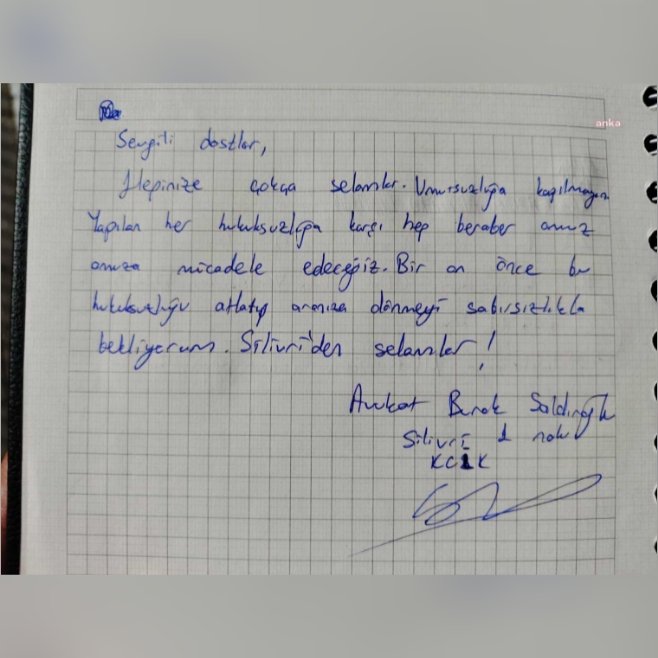 anka
Sevgili dostlar,
Hepinize çokça selamlar. Umursuzluğa kapılmayın
Yapılan her hukuksuzluğa karşı hep beraber omuz
omuza mücadele edeceğiz. Bir an önce bu
hukuksuzluğu atlatıp aranıza dönmeyi sabırsızlıkla
bekliyorum. Silivri'den selamlar!
Avukat Burak Saldıroğlu
Silivri 1 nolu
KCİK